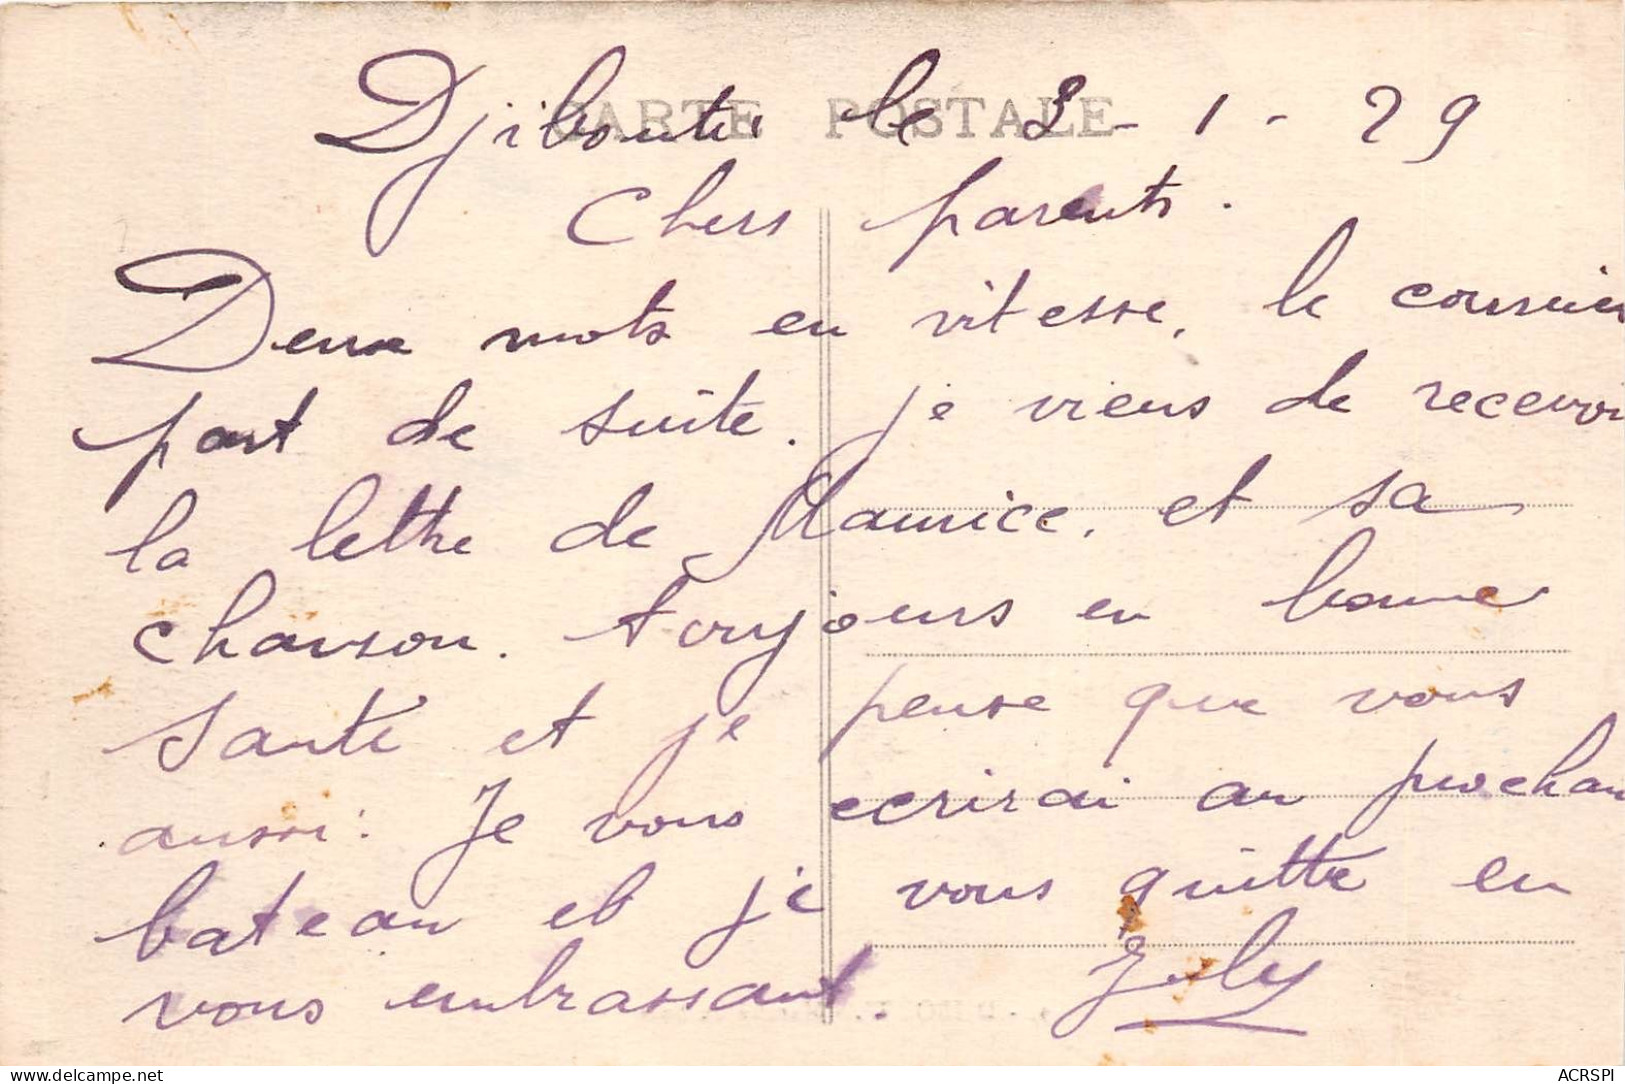 CARTE POSTALE
Djibouti le 3 - 1 - 29
Chers parents.
Deux mots en vitesse, le courrier
part de suite. je viens de recevoir
la lettre de Maurice. et sa
chanson. toujours en bonne
santé et je pense que vous
aussi. Je vous ecrirai au prochain
bateau et je vous quitte en
vous embrassant.
www.delcampe.net
ACRSPI